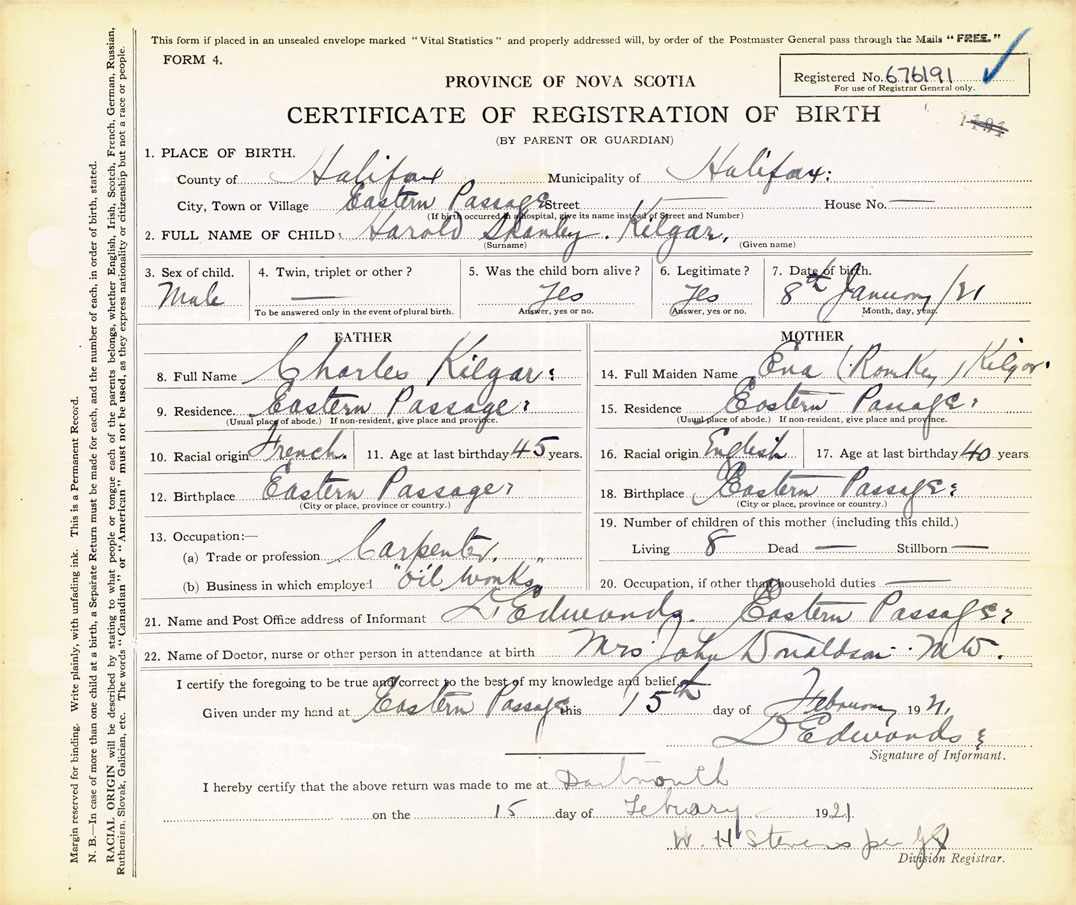 This form if placed in an unsealed envelope marked "Vital Statistics" and properly addressed will, by order of the Postmaster General pass through the Mails "FREE."
FORM 4.
Registered No. 676191
For use of Registrar General only.
PROVINCE OF NOVA SCOTIA
CERTIFICATE OF REGISTRATION OF BIRTH
(BY PARENT OR GUARDIAN)
1. PLACE OF BIRTH.
County of Halifax Municipality of Halifax:
City, Town or Village Eastern Passage Street House No. —
(If birth occurred in a hospital, give its name instead of Street and Number)
2. FULL NAME OF CHILD: Harold Kilgar,
(Surname) (Given name)
3. Sex of child. 4. Twin, triplet or other? 5. Was the child born alive? 6. Legitimate? 7. Date of birth.
Male — Yes Yes 8th January /21
To be answered only in the event of plural birth. Answer, yes or no. Answer, yes or no. Month, day, year.
FATHER
8. Full Name Charles Kilgar:
9. Residence. Eastern Passage:
(Usual place of abode.) If non-resident, give place and province.
10. Racial origin French. 11. Age at last birthday 45 years.
12. Birthplace Eastern Passage:
(City or place, province or country.)
13. Occupation:—
(a) Trade or profession Carpenter.
(b) Business in which employed "Oil Works"
MOTHER
14. Full Maiden Name Eva (Romkey) Kilgar.
15. Residence Eastern Passage:
(Usual place of abode.) If non-resident, give place and province.
16. Racial origin English 17. Age at last birthday 40 years.
18. Birthplace Eastern Passage:
(City or place, province or country.)
19. Number of children of this mother (including this child.)
Living 8 Dead — Stillborn —
20. Occupation, if other than household duties —
21. Name and Post Office address of Informant D Edwards. Eastern Passage:
22. Name of Doctor, nurse or other person in attendance at birth Mrs John Donaldson. MW.
I certify the foregoing to be true and correct to the best of my knowledge and belief.
Given under my hand at Eastern Passage this 15th day of February 1921.
D Edwards
Signature of Informant.
I hereby certify that the above return was made to me at Dartmouth
on the 15 day of February 1921.
W. H Stevens per
Division Registrar.
Margin reserved for binding. Write plainly, with unfading ink. This is a Permanent Record.
N. B.—In case of more than one child at a birth, a Separate Return must be made for each, and the number of each, in order of birth, stated.
RACIAL ORIGIN will be described by stating to what people or tongue each of the parents belongs, whether English, Irish, Scotch, French, German, Russian,
Ruthenian, Slovak, Galician, etc. The words "Canadian" or "American" must not be used, as they express nationality or citizenship but not a race or people.